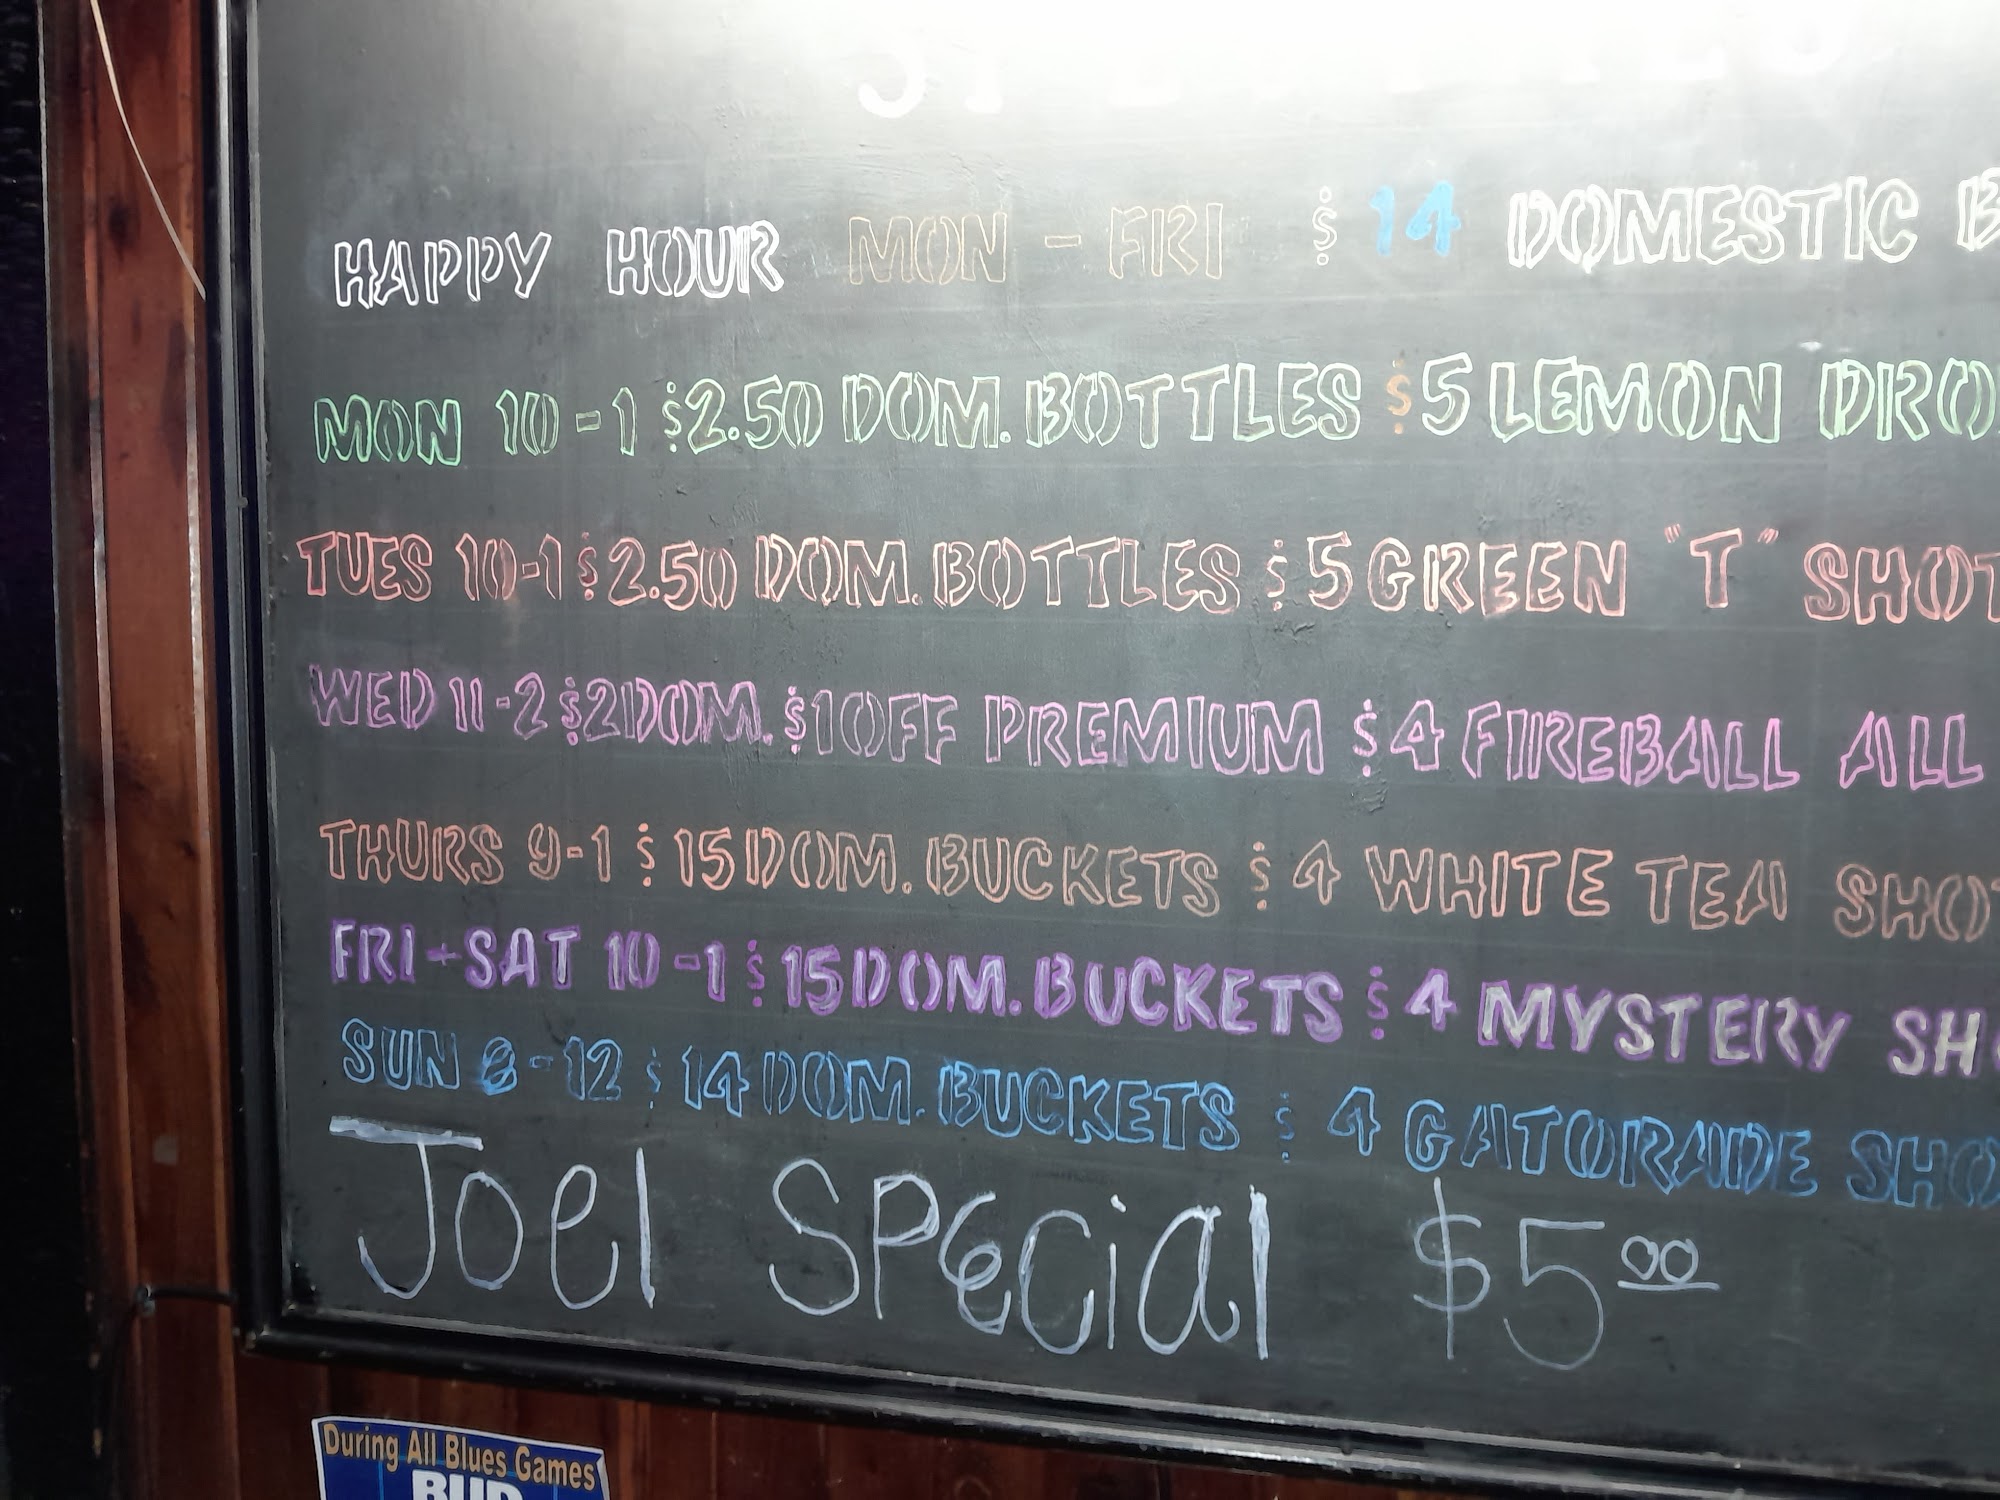 HAPPY HOUR MON - FRI $14 DOMESTIC
MON 10-1 $2.50 DOM. BOTTLES $5 LEMON DRO
TUES 10-1 $2.50 DOM. BOTTLES $5 GREEN "T" SHOT
WED 11-2 $2 DOM. $1 OFF PREMIUM $4 FIREBALL ALL
THURS 9-1 $15 DOM. BUCKETS $4 WHITE TEA SHOT
FRI+SAT 10-1 $15 DOM. BUCKETS $4 MYSTERY SH
SUN 8-12 $14 DOM. BUCKETS $4 GATORADE SHO
Joel Special $5.00
During All Blues Games
BUD